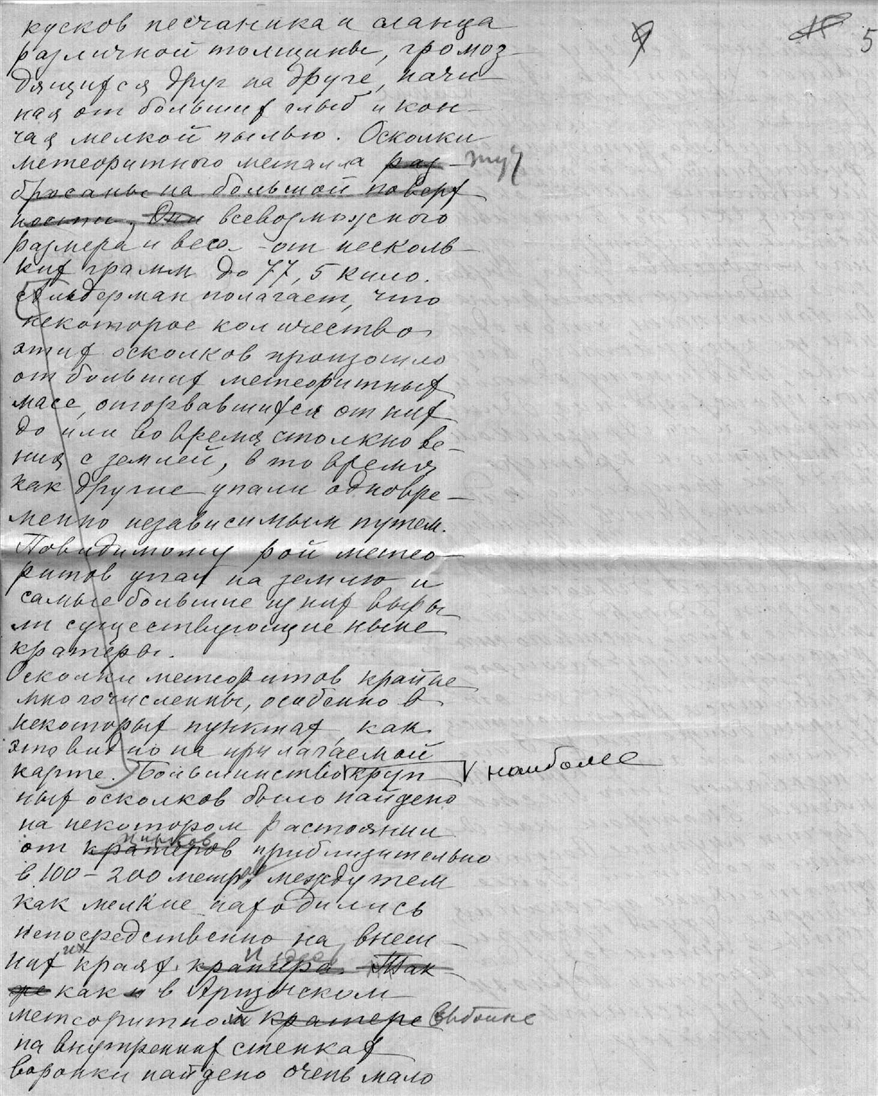 5
кусков песчаника и сланца
различной толщины, громоз-
дящихся друг на друге, начи-
ная от больших глыб и кон-
чая мелкой пылью. Осколки
метеоритного металла раз- тут
бросаны на большой поверх
ности, Они всевозможного
размера и веса - от несколь-
ких грамм до 77,5 кило.
Спльдерман полагает, что
некоторое количество
этих осколков произошло
от больших метеоритных
масс, оторвавшихся от них
до или во время столкнове-
ния с землей, в то время
как другие упали одновре-
менно независимым путем.
Повидимому рой метео-
ритов упал на землю и
самые большие из них выры-
ли существующие ныне
кратеры.
Осколки метеоритов крайне
многочисленны, особенно в
некоторых пунктах, как
это видно на прилагаемой
карте. Большинство V круп- V наиболее
ных осколков было найдено
на некотором растоянии
от кратеров приблизительно
в 100-200 метров между тем
как мелкие находились
непосредственно на внеш-
них их краях кратера. Так
же как и в Аризонском
метеоритном кратере
на внутренних стенках
воронки найдено очень мало